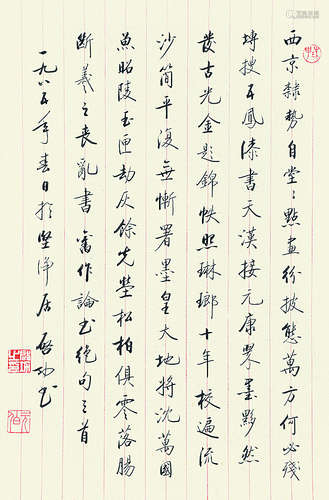 西京隸勢自堂〻點畫紛披態萬方何必殘
塼搜五鳳漆書天漢接元康翠墨黟然
發古光金題錦帙照琳瑯十年校遍流
沙簡平復無慚署墨皇大地將沈萬國
魚昭陵玉匣劫灰餘先塋松柏俱零落腸
斷羲之喪亂書 舊作論書絕句三首
一九八五年春日於堅淨居 啟功書